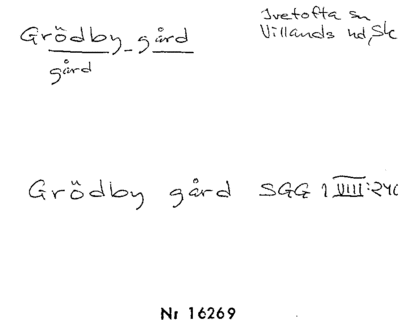 Grödby gård
gård
Ivetofta sn
Villands hd, Sk
Grödby gård SGG 1 VIII:240
Nr 16269